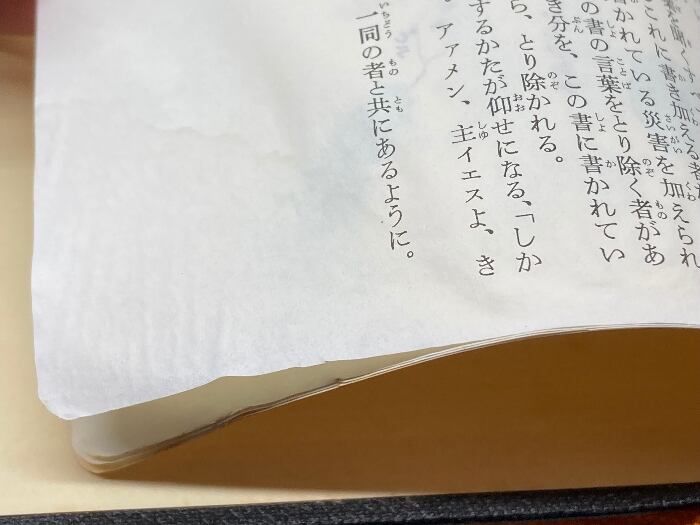 これに書き加える者
書かれている災害を加えられ
の書の言葉をとり除く者があ
き分を、この書に書かれてい
ら、とり除かれる。
するかたが仰せになる、「しか
。アァメン、主イエスよ、き
一同の者と共にあるように。